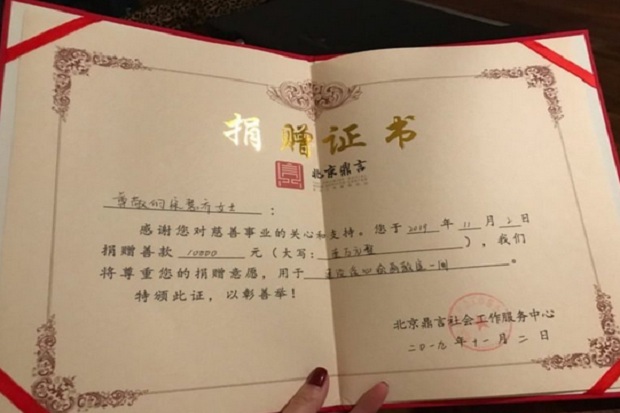 捐赠证书
北京鼎言
尊敬的张 女士：
感谢您对慈善事业的关心和支持。您于 2019 年 11 月 2 日
捐赠善款 10000 元（大写： 壹万元整 ），我们
将尊重您的捐赠意愿，用于 。
特颁此证，以彰善举！
北京鼎言社会工作服务中心
二〇一九年十一月二日